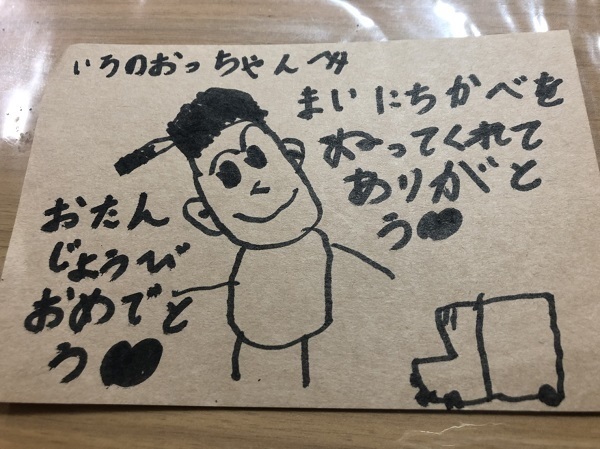 いろのおっちゃんへ
まいにちかべを
ぬってくれて
ありがと
う♥
おたん
じょうび
おめでと
う♥